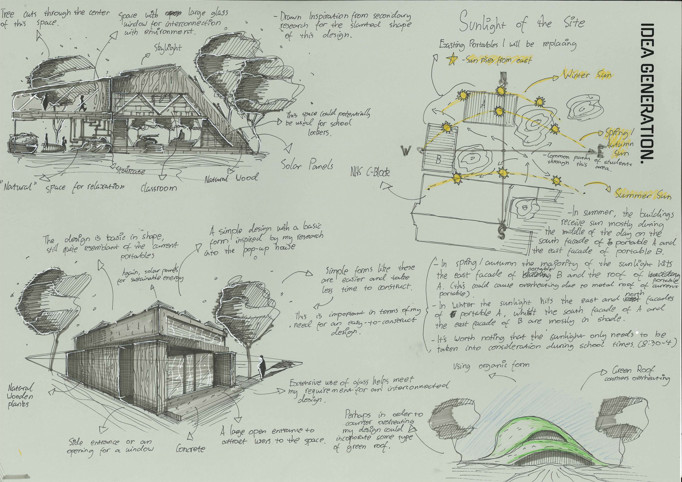 IDEA GENERATION.
Tree cuts through the center
of this space.
Space with large glass
window for interconnection
with environment.
Skylight
- Drawn Inspiration from secondary
research for the slantent shape
of this design.
This space could potentially
be useful for school
lockers.
Solar Panels
"Natural" space for relaxation
Staircase
Classroom
Natural Wood
Sunlight of the Site
Existing Portables I will be replacing
- Sun rises from east
Winter Sun
Spring/
Autumn
Sun
Summer Sun
A
B
W
- Common paths of students
through this
area.
N&S C-Block
- In summer, the buildings
receive sun mostly during
the middle of the day on the
south facade of portable A and
the east facade of portable B
- In spring/autumn the majority of the sunlight hits
the east facade of portable B and the roof of portable
A. (this could cause overheating due to metal roof of current
portables)
- In Winter the sunlight hits the east and north facades
of portable A, whilst the south facade of A and
the east facade of B are mostly in shade.
- It's worth noting that the sunlight only needs to be
taken into consideration during school times. (8:30-4)
The design is basic in shape,
still quite resemblant of the current
portables
A simple design with a basic
form inspired by my research
into the pop-up house
Again, solar panels
for sustainable energy
Simple forms like these
are easier and take
less time to construct.
This is important in terms of my
need for an easy-to-construct
design.
Natural
Wooden
plants
Excessive use of glass helps meet
my requirement for an interconnected
design.
Side entrance or an
opening for a window
Concrete
A large open entrance to
attract users to the space.
Using organic form
Green Roof
counters overheating
Perhaps in order to
counter overheating
my design could
incorporate some type
of green roof.